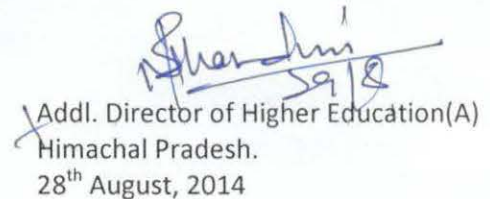 Addl. Director of Higher Education(A)
Himachal Pradesh.
28th August, 2014